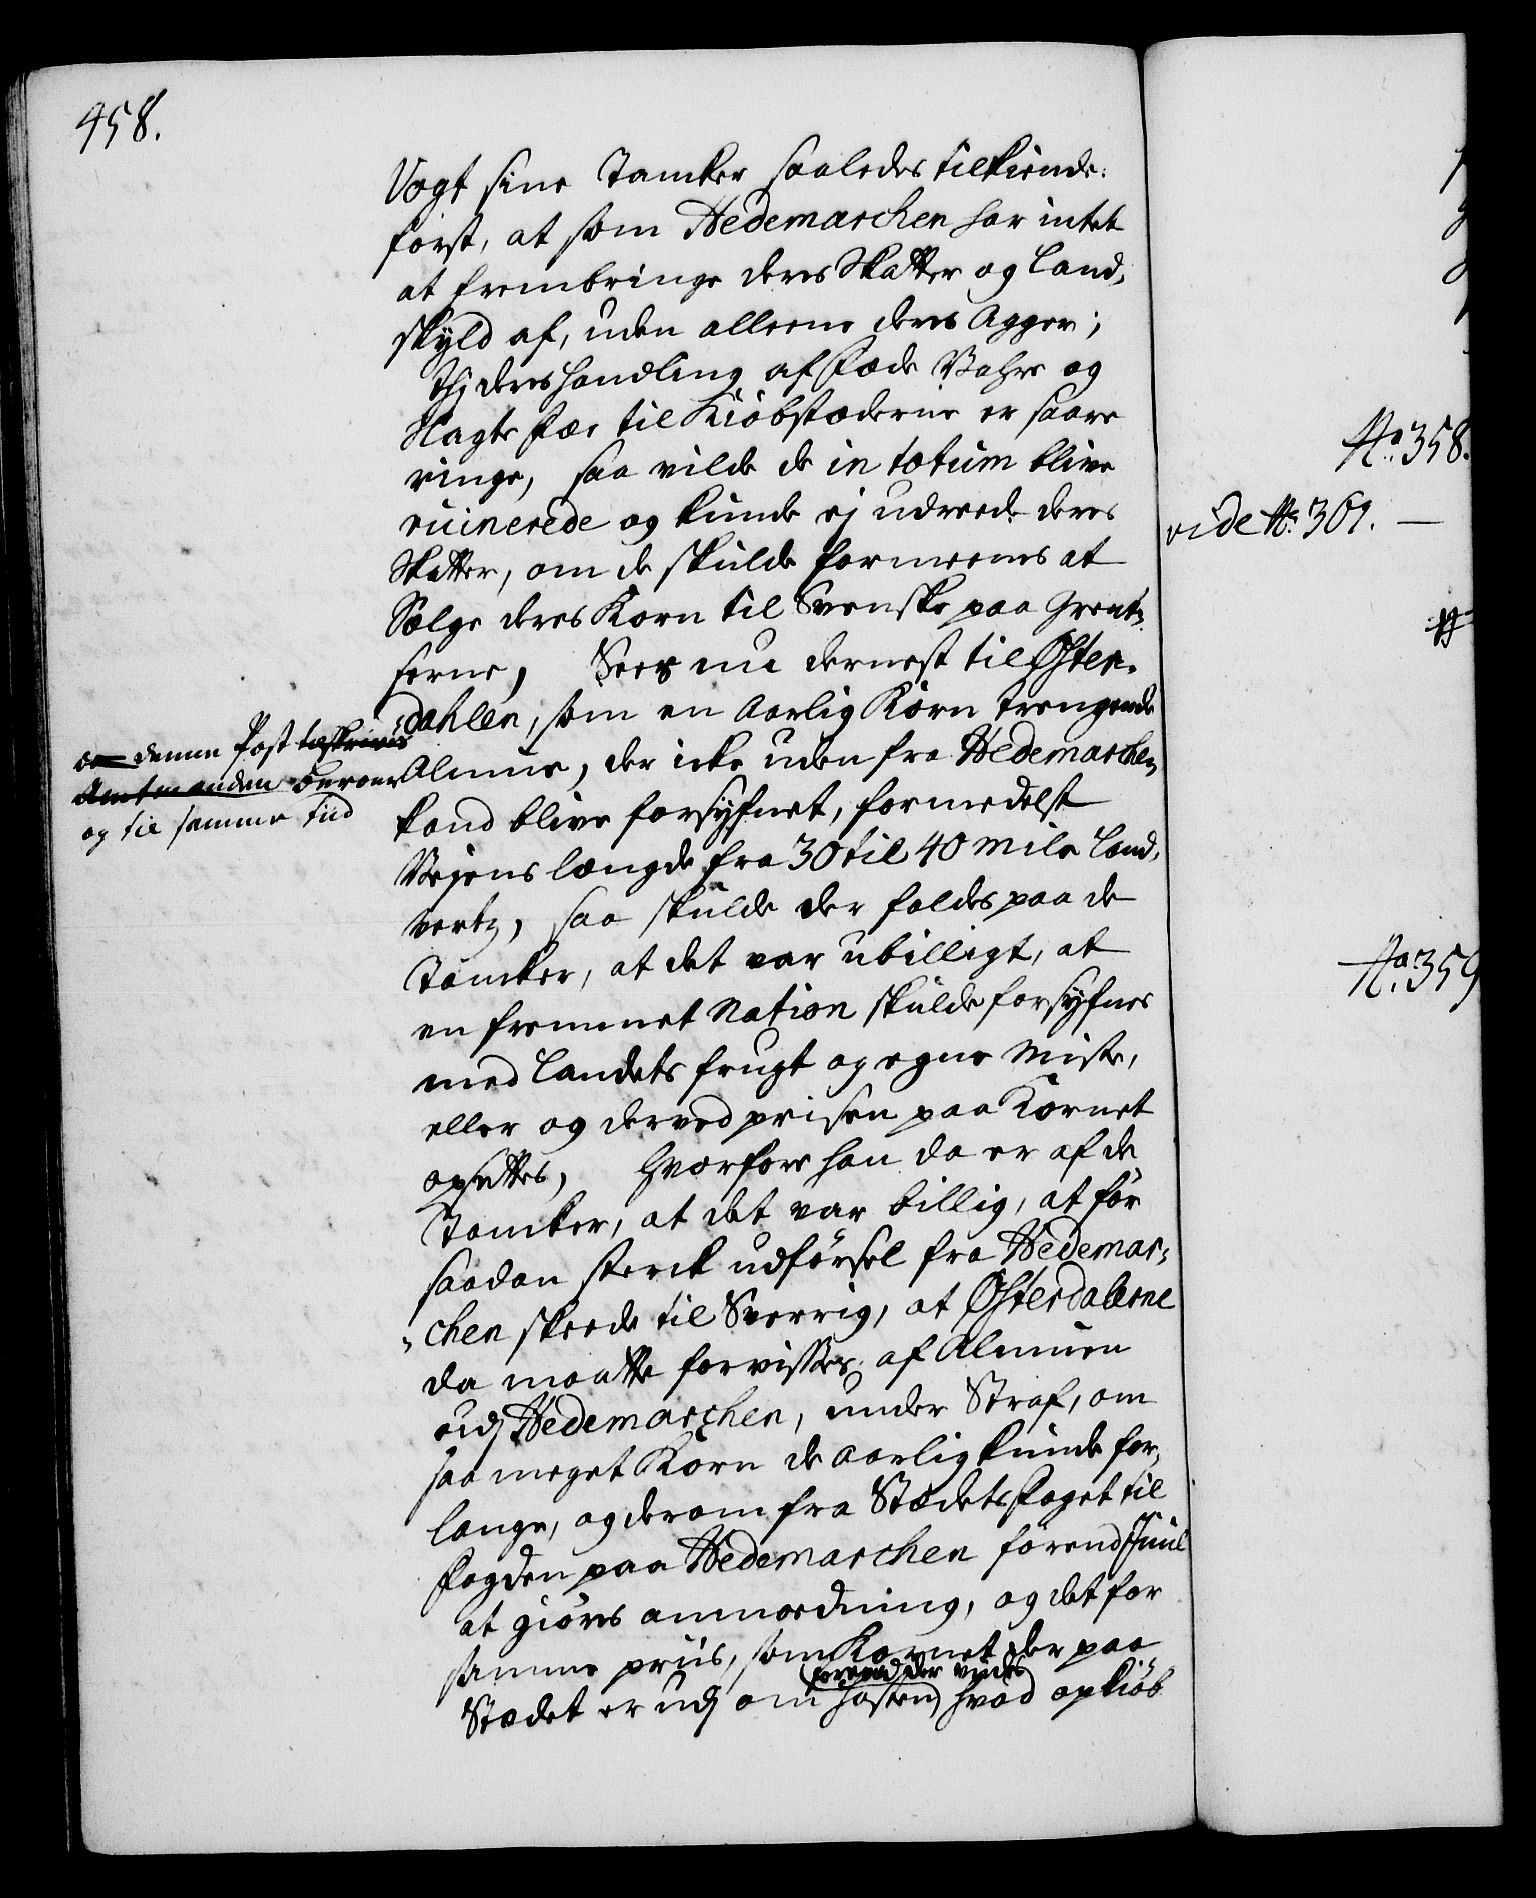 458.
Vogt sine Tancker saaledes tilkiende:
først, at som Hedemarchen har intet
at frembringe deres Skatter og Land-
skyld af, uden alleene deres Agger;
thj deres handling af Føde Vahre og
Slagte Fæe til Kiøbstæderne er saare
ringe, saa vilde de in totum blive
ruinerede og kunde ej udreede deres
Skatter, om de skulde formeenes at
Sælge deres Korn til Svenske paa Grent-
serne, Sees nu dernest til Østen-
dahlen, som en Aarlig Korn trengende
Almue, der icke uden fra Hedemarchen
kand blive forsyfnet, formedelst
Vejens længde fra 30 til 40 Mile Land-
verts, saa skulde der faldes paa de
Tancker, at det var ubilligt, at
en fremmet Nation skulde forsyfnes
med Landets frugt og egne Miste,
eller og derved prisen paa Kornet
opsettes, hvorfore han da er af de
Tancker, at det var billig, at før
saadan sterck udførsel fra Hedemar-
chen skeede til Sverrig, at Østerdalerne
da maatte forvisses af Almuen
udj Hedemarchen, under Straf, om
saa meget Korn de aarlig kunde for-
lange, og derom fra Stædets Foget til
Fogden paa Hedemarchen førend Juul
at giøres anmordning, og det for
samme priis, som Kornet der paa
Stædet er udj om høsten hvad opkiøb
denne Post
og til samme tiid
No. 358.
vide No. 361. —
No. 359